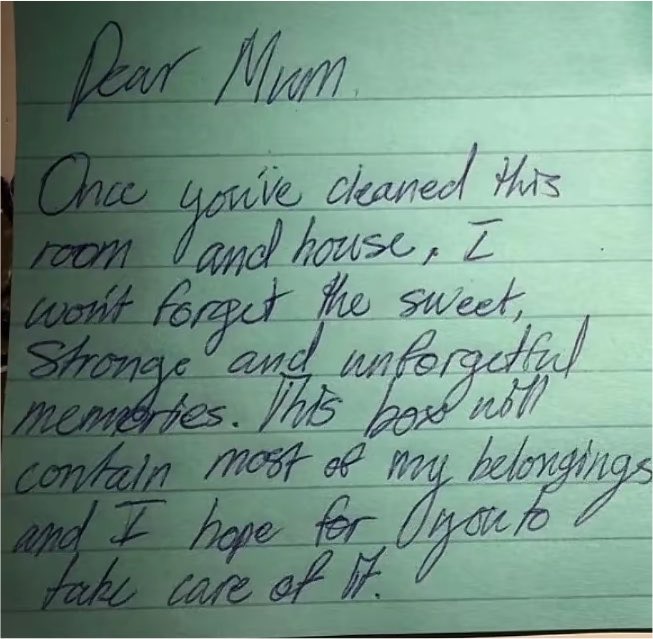 Dear Mum.
Once you've cleaned this
room and house, I
won't forget the sweet,
Stronge and unforgetful
memories. This box will
contain most of my belongings
and I hope for you to
take care of it.